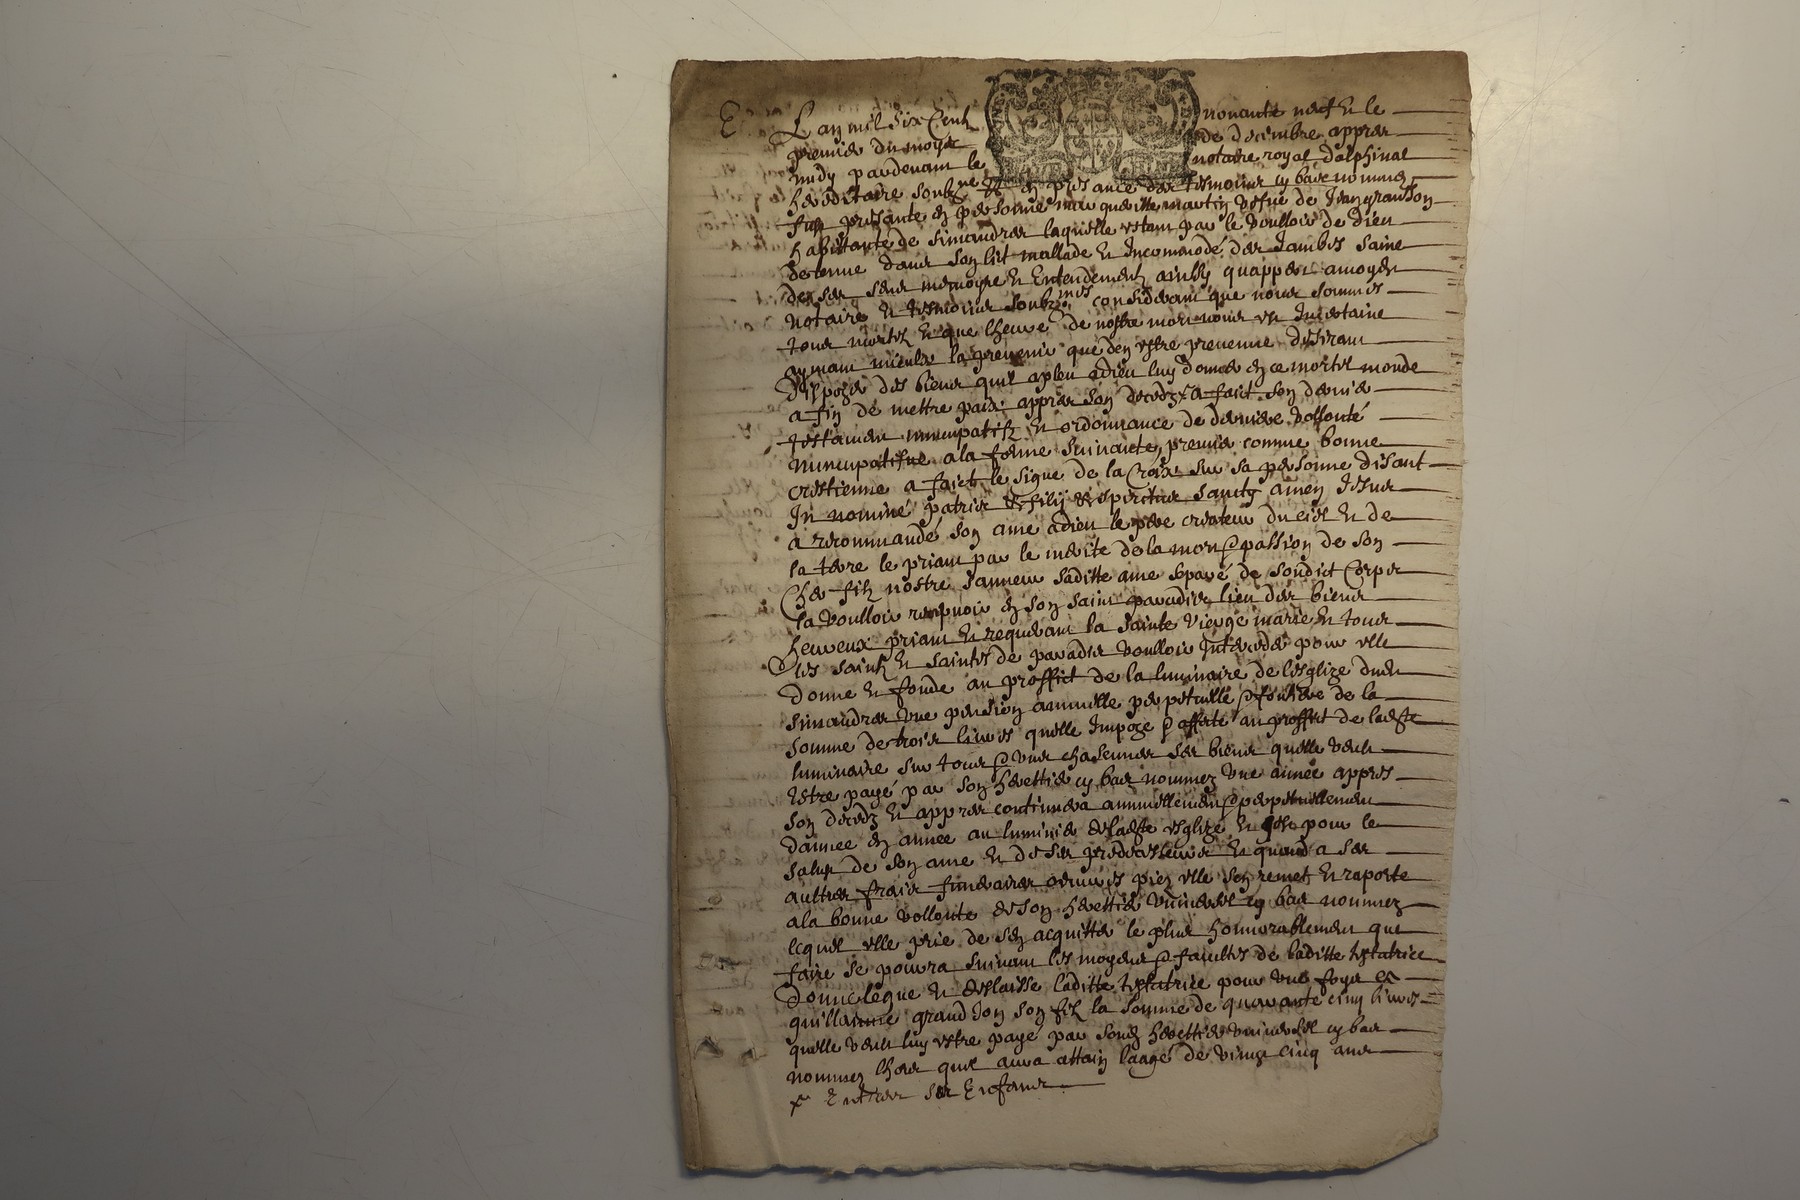 L'an mil six Cent nonante neuf et le
premier du moys de decembre appres
midy pardevant le notaire royal dalphinal
hereditaire soubz.ne et en presance des tesmoins cy bas nommes
fust presante en personne margueritte martin vefve de Jean grandson
habittante de simandres laquelle estant par le voulloir de dieu
detenue dans son lit mallade et Incommodé des Jambes saine
de ses sens memoyre et Entendement ainsy quappert a moy dit
notaire et tesmoins soubz.nes considerant que nous sommes
tous mortels et que lheure de nostre mort nous est Incertaine
aymant mieulx la prevenir que den estre prevenue desirant
dispozer des biens quil a pleu a dieu luy donner en ce mortel monde
afin de mettre paix appres son decedz x a faict son dernier
testament nuncupatif et ordonnance de derniere vollonté
nuncupatifve a la forme suivante, premier comme bonne
crestienne a faict le signe de la Croix sur sa personne disant
In nomine patris et filij et spiritus sancty amen Jesus
a recommandé son ame a dieu le pere createur du ciel et de
la terre le priant par le merite de la mort et passion de son
Cher filz nostre sauveur saditte ame separé de sondict Corps
la voulloir recepvoir en son saint paradis lieu des biens
heureux priant et requerant la sainte vierge marie et tous
les saints et saintes de paradis voulloir Interceder pour elle
donne et fonde au proffict de la luminaire de lesglize dudit
simandres une pension annuelle perpetuelle et fonciere de la
somme de trois livres quelle Impoze et affecte au proffict de ladite
luminaire sur tous et uns chascungs ses biens quelle veult
Estre payé par son herettier cy bas nommez une année appres
son decedz et appres continuera annuellement et perpetuellement
dannee en année au luminier de ladite esglize et ce pour le
salut de son ame et de ses predecesseurs et quand a ses
aultres frais funeraires oeuvres pies elle sen remet et raporte
a la bonne vollonté de son herettier universel cy bas nommez
lequel elle prie de sen acquitter le plus honnorablement que
faire se pourra suivant les moyens et facultes de laditte testatrice
donne legue et deslaisse laditte testatrice pour une foys a
guillaume grandson son filz la somme de quarante cinq livres
quelle veult luy estre payé par sondit herettier universel cy bas
nommez lhors quil aura attain laagé de vingt cinq ans
x Entres ses Enfans